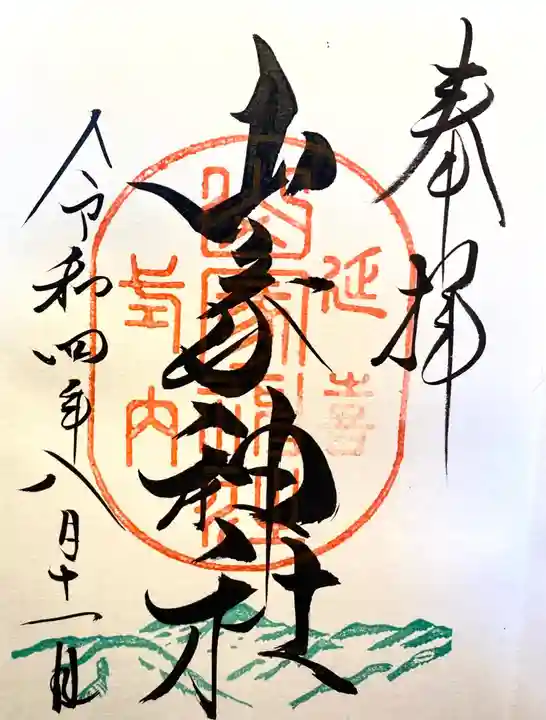 奉拝
延喜
山家神社
山家神社
式内
令和四年八月十一日